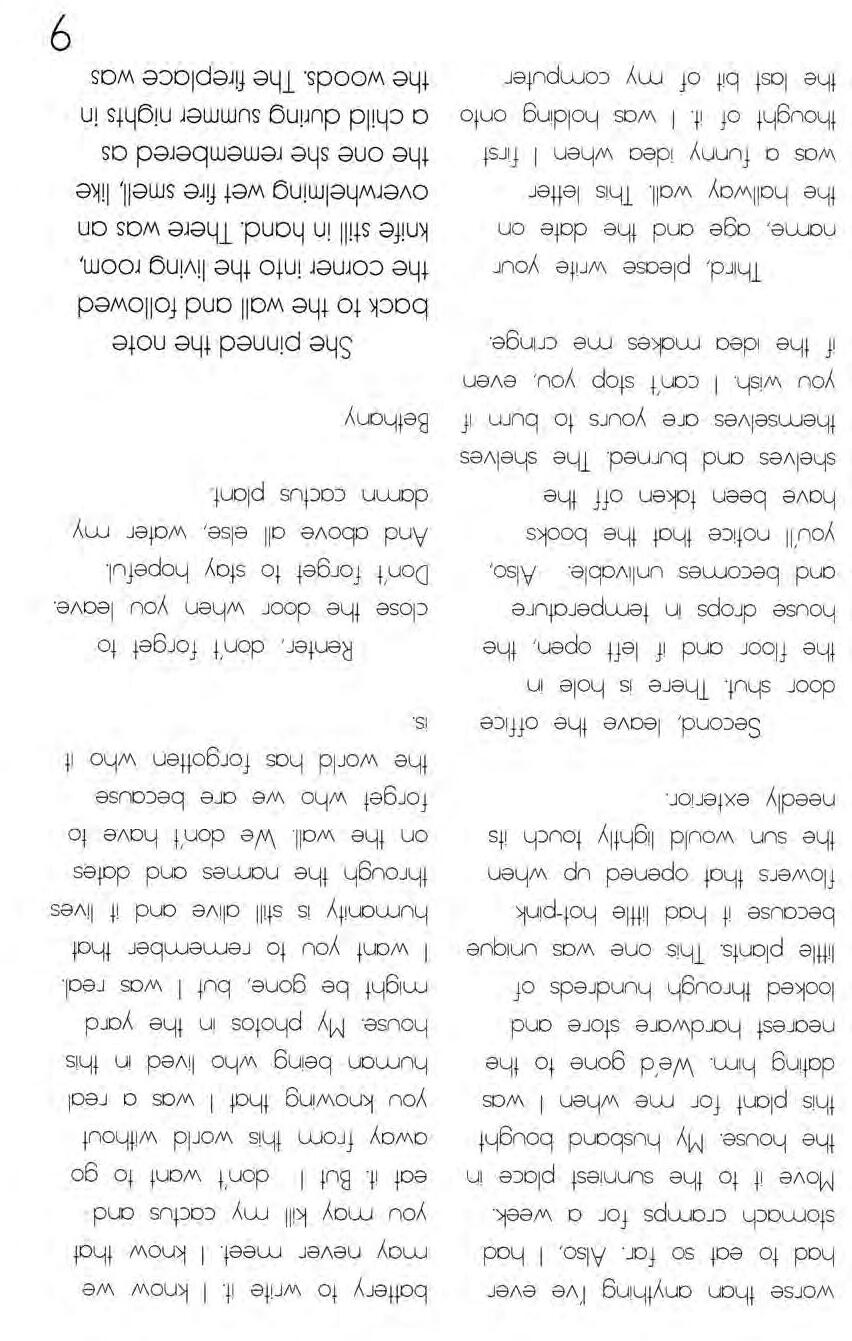 worse than anything I've ever
had to eat so far. Also, I had
stomach cramps for a week.
Move it to the sunniest place in
the house. My husband bought
this plant for me when I was
dating him. We'd gone to the
nearest hardware store and
looked through hundreds of
little plants. This one was unique
because it had little hot-pink
flowers that opened up when
the sun would lightly touch its
needly exterior.
Second, leave the office
door shut. There is hole in
the floor and if left open, the
house drops in temperature
and becomes unlivable. Also,
you'll notice that the books
have been taken off the
shelves and burned. The shelves
themselves are yours to burn if
you wish. I can't stop you, even
if the idea makes me cringe.
Third, please write your
name, age and the date on
the hallway wall. This letter
was a funny idea when I first
thought of it. I was holding onto
the last bit of my computer
battery to write it. I know we
may never meet. I know that
you may kill my cactus and
eat it. But I don't want to go
away from this world without
you knowing that I was a real
human being who lived in this
house. My photos in the yard
might be gone, but I was real.
I want you to remember that
humanity is still alive and it lives
through the names and dates
on the wall. We don't have to
forget who we are because
the world has forgotten who it
is.
Renter, don't forget to
close the door when you leave.
Don't forget to stay hopeful.
And above all else, water my
damn cactus plant.
Bethany
She pinned the note
back to the wall and followed
the corner into the living room,
knife still in hand. There was an
overwhelming wet fire smell, like
the one she remembered as
a child during summer nights in
the woods. The fireplace was
9